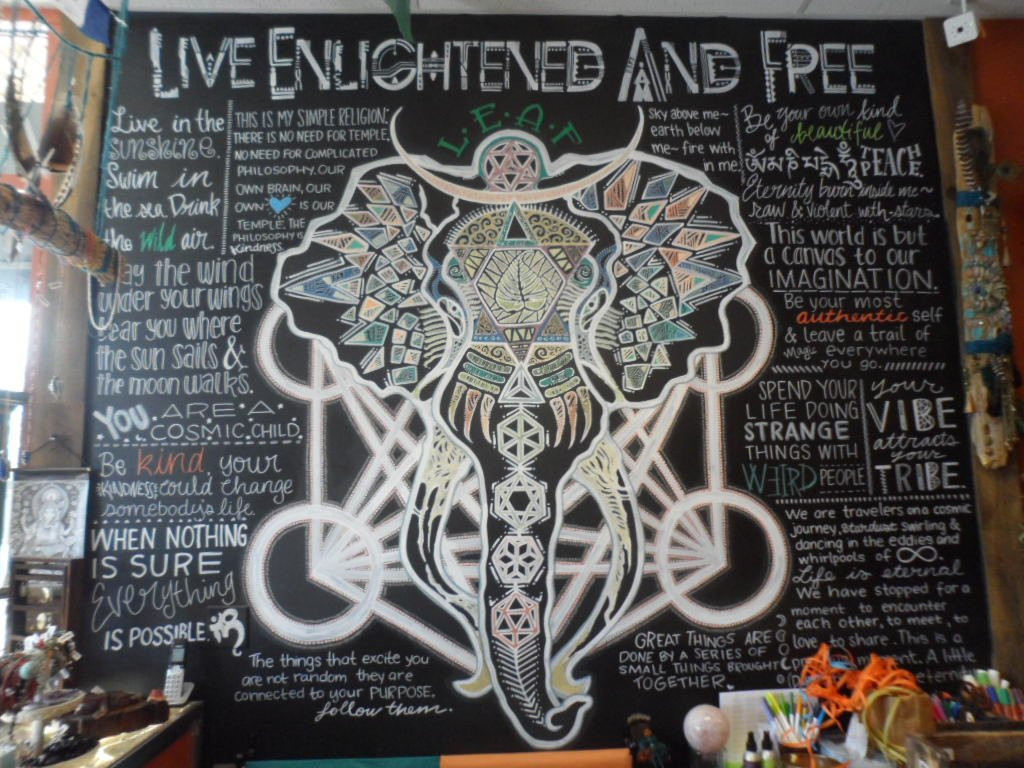 LIVE ENLIGHTENED AND FREE
L.E.A.F
Live in the
sunshine.
Swim in
the sea. Drink
the wild air.
THIS IS MY SIMPLE RELIGION:
THERE IS NO NEED FOR TEMPLE,
NO NEED FOR COMPLICATED
PHILOSOPHY. OUR
OWN BRAIN, OUR
OWN IS OUR
TEMPLE, THE
PHILOSOPHY IS
Kindness.
the wind
under your wings
bear you where
the sun sails &
the moon walks.
YOU ARE A
COSMIC CHILD.
Be kind, your
KINDNESS could change
somebody's life.
WHEN NOTHING
IS SURE
Everything
IS POSSIBLE.
ॐ
The things that excite you
are not random they are
connected to your PURPOSE.
follow them.
Sky above me~
earth below
me~ fire with
in me.
Be your own kind
of beautiful
TEACH.
Eternity burn inside me~
raw & violent with stars.
This world is but
a canvas to our
IMAGINATION.
Be your most
authentic self
& leave a trail of
Magic everywhere
YOU GO.
SPEND YOUR
LIFE DOING
STRANGE
THINGS WITH
WEIRD PEOPLE
your
VIBE
attracts
your
TRIBE.
We are travelers on a cosmic
journey, stardust swirling &
dancing in the eddies and
whirlpools of ∞.
Life is eternal
We have stopped for a
moment to encounter
each other, to meet, to
love, to share. This is a
A little
GREAT THINGS ARE
DONE BY A SERIES OF
SMALL THINGS BROUGHT
TOGETHER.